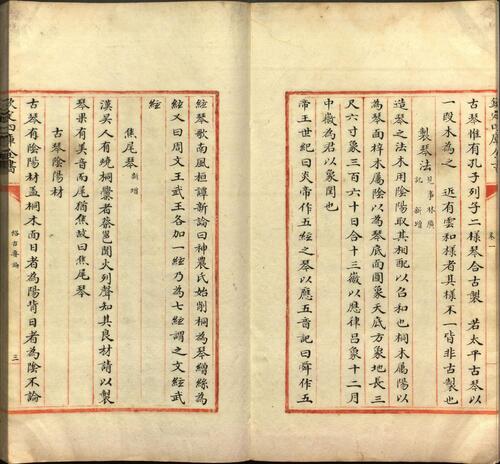 欽定四庫全書
卷一
古琴惟夫子列子二樣琴合古製若太平古琴以
一段木為之近有雲和樣者其樣不一皆非古製也
製琴法見事林廣記新增
造琴之法木用陰陽取其相配以召和也桐木屬陽以
為琴面梓木屬陰以為琴底面圓象天底方象地長三
尺六寸象三百六十日合十三徽以應律吕象十二月
中徽為君以象閏也
帝王世紀曰炎帝作五絃之琴以應五音記曰舜作五
絃琴歌南風桓譚新論曰神農氏始削桐為琴繩絲為
絃又曰周文王武王各加一絃乃為七絃謂之文絃武
絃
焦尾琴新增
漢吳人有燒桐爨者蔡邕聞火列聲知其良材請以製
琴果有美音而尾猶焦故曰焦尾琴
古琴陰陽材
古琴有陰陽材盖桐木面日者為陽背日者為陰不論
欽定四庫全書
格古要論
三